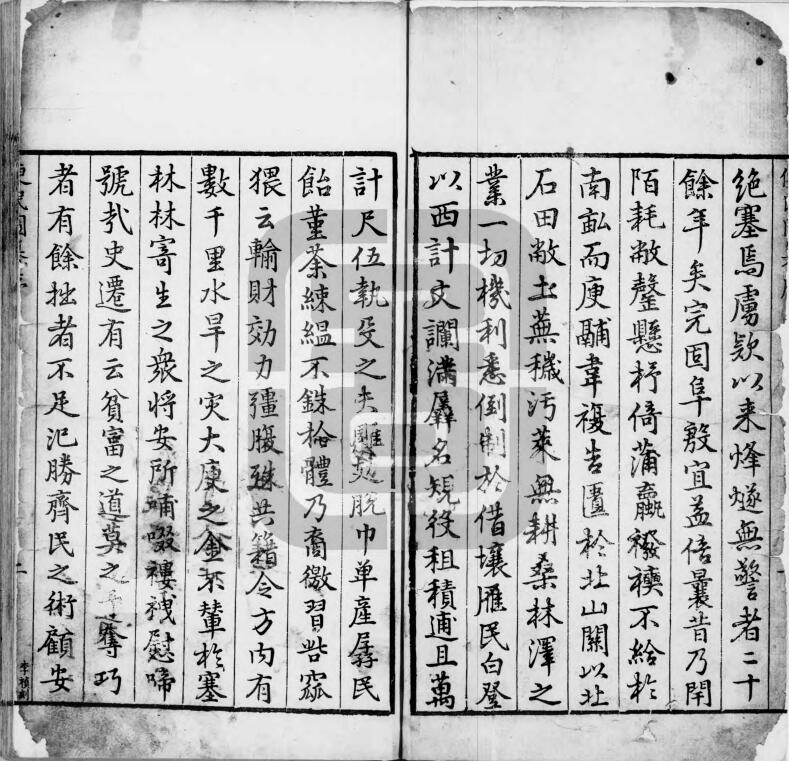 絶塞焉虜欵以来烽燧無警者二十
餘年矣完固阜殷宜益倍曩昔乃閈
陌耗敝罄懸杼倚蒲蠃襏襫不給於
南畝而庚鬴韋複告匱於北山關以北
石田敝土蕪穢汚萊無耕桑林澤之
業一切機利悉倒制於借壤雁民白登
以西計文讕滿孱名規役租積逋且萬
計尺伍執殳之夫雕麫脫巾单產孱民
飴堇荼練縕不銖拾體乃裔徼習呰窳
猥云輸財効力彊腹殊共籍令方内有
數千里水旱之灾大庾之金不輦於塞
林林寄生之衆将安所哺啜褸裋慰啼
號㢤史遷有云貧富之道莫之奪巧
者有餘拙者不足氾勝齊民之術顧安
二
李楨刻